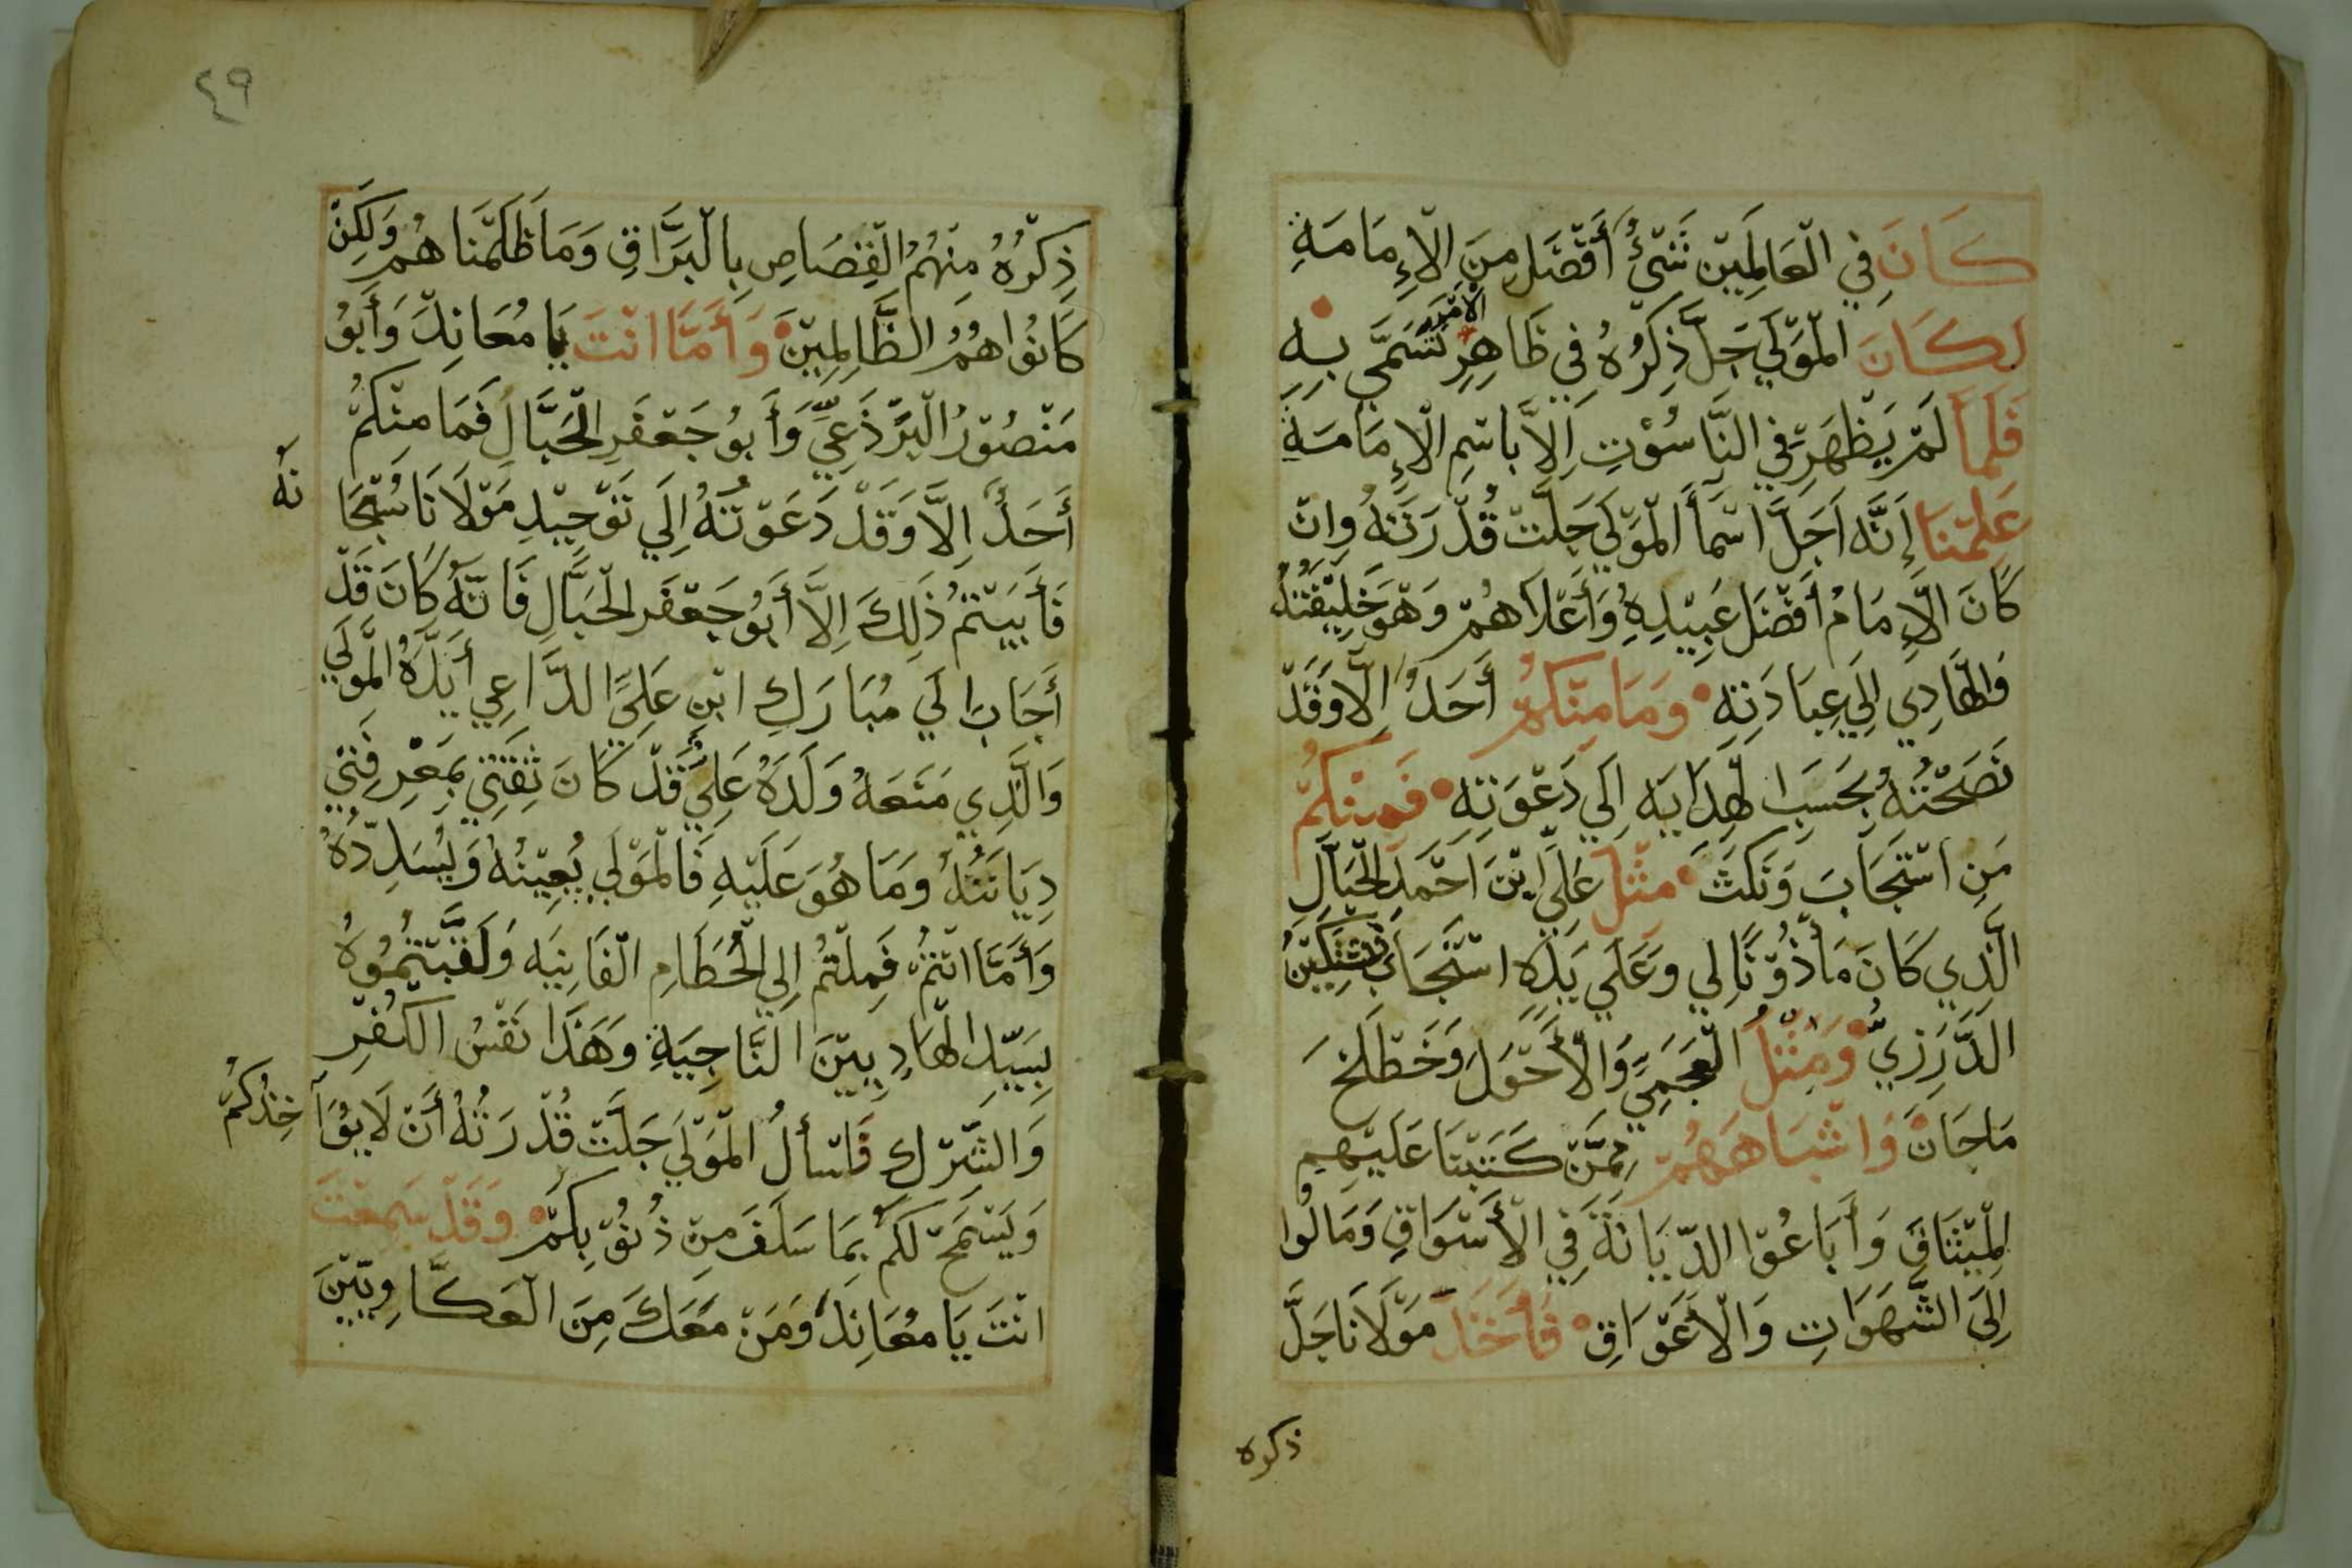 كَانَ فِي الْعَالَمِيْن شَيْءٌ أَفْضَل مِنَ الْإِمَامَةِ
لكَانَ الْمَوْلَي جَلَّ ذِكْرُهُ فِي ظَاهِرِ الْأَمْرِ تَسَمَّي بِهِ
فَلَمَّا لَمْ يَظْهَرْ فِي النَّاسُوْتِ إِلاَّ بِاسْمِ الْإِمَامَةِ
عَلِمْنَا إِنَّهُ اَجَلَّ اسْمَاً الْمَوْلَي جَلَّتْ قُدْرَتَهُ وَانْ
كَانَ الْإِمَامُ أَفْضَل عَبِيْدِهِ وَأَعْلَاهُمْ وَهْوَ خَلِيْفَتُهُ
وَالْهَادِي إِلَي عِبَادَتِهِ وَمَا مِنْكُمْ أَحَدٌ اِلَّا وَقَدْ
نَصَحْتُهُ بِحَسَبِ الْهِدَايَه اِلَي دَعْوَتِهِ فَمِنْكُمْ
مَنِ اسْتَجَابَ وَنَكَثَ مِثْل عَلِيِّ ابْنَ اَحْمَد الْحَبَّالِ
الَّذِي كَانَ مَأْذُوْنًا لِي وَعَلَي يَدِهِ اسْتَجَابَ نَشْتَكِيْنُ
الدَّرَزِيُّ وَمِثْلُ الْعَجَمِيِّ وَالْأَحْوَلِ وَخَطْلَخَ
مَاجَانْ وَاشْبَاهَهُمْ مِمَّنْ كَتَبْنَا عَلَيْهِمِ
الْمِيْثَاقَ وَأَبَاعُوْا الدِّيَانَةَ فِي الْأَسْوَاقِ وَمَالُوا
إِلَى الشَّهَوَاتِ وَالْأَعْوَاقِ فَأَخَذَ مَوْلَانَا جَلَّ
ذكره
٤٩
ذِكْرُهُ مِنْهُمُ الْقِصَاصِ بِالْبَرَّاقِ وَمَا ظَلَمْنَاهُمْ وَلَكِنْ
كَانُوا هُمُ الظَّالِمِيْنَ وَأَمَّا انْتَ يَا مُعَانِدَ وَأَبُوْ
مَنْصُوْرُ الْبَرْذَعِيِّ وَأَبُو جَعْفَرِ الْحَبَّالِ فَمَا مِنْكُمْ
أَحَدٌ اِلَّا وَقَدْ دَعَوْتُهُ اِلَي تَوْحِيْدِ مَوْلَانَا سُبْحَا نَهُ
فَأَبَيْتُمْ ذَلِكَ اِلَّا أَبُو جَعْفَر الْحَبَّالِ فَانَّهُ كَانَ قَدْ
أَجَابَ اِلَي مُبَارَكِ ابْنِ عَلِيِّ الدَّاعِي أَيَّدَهُ الْمَوْلَي
وَالَّذِي مَنَعَهُ وَلَدَهُ عَلِيٍّ قَدْ كَانَ ثِقَتِيْ بِمَعْرِفَتِيْ
دِيَانَتُهُ وَمَا هُوَ عَلَيْهِ فَالْمَوْلَي يُعِيْنُهُ وَيُسَدِّدُهُ
وَأَمَّا انْتُمْ فَمِلْتُمْ اِلَي الْحُطَامِ الْفَانِيَه وَلَقَّبْتُمُوْهُ
بِسَيِّدِ الْهَادِيِيْنَ النَّاجِيَةِ وَهَذَا نَفْسُ الْكُفْرِ
وَالشِّرْكِ فَاسْألُ الْمَوْلَي جَلَّتْ قُدْرَتُهُ أَنْ لَايُوَآ خِذُكُمْ
وَيَسْمَحْ لَكُمْ بِمَا سَلَفَ مِنْ ذُنُوْبِكُمْ وَقَدْ سَمِعْتَ
انْتَ يَا مُعَانِدُ وَمَنْ مَعَكَ مِنَ الْعَكَّاوِيِّيْنَ